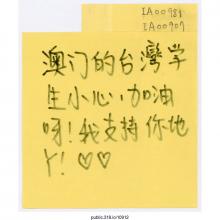 IA00981
IA00907
澳门的台灣学
生小心,加油
呀!我支持你地
丫!♡♡
public.318.io/10913